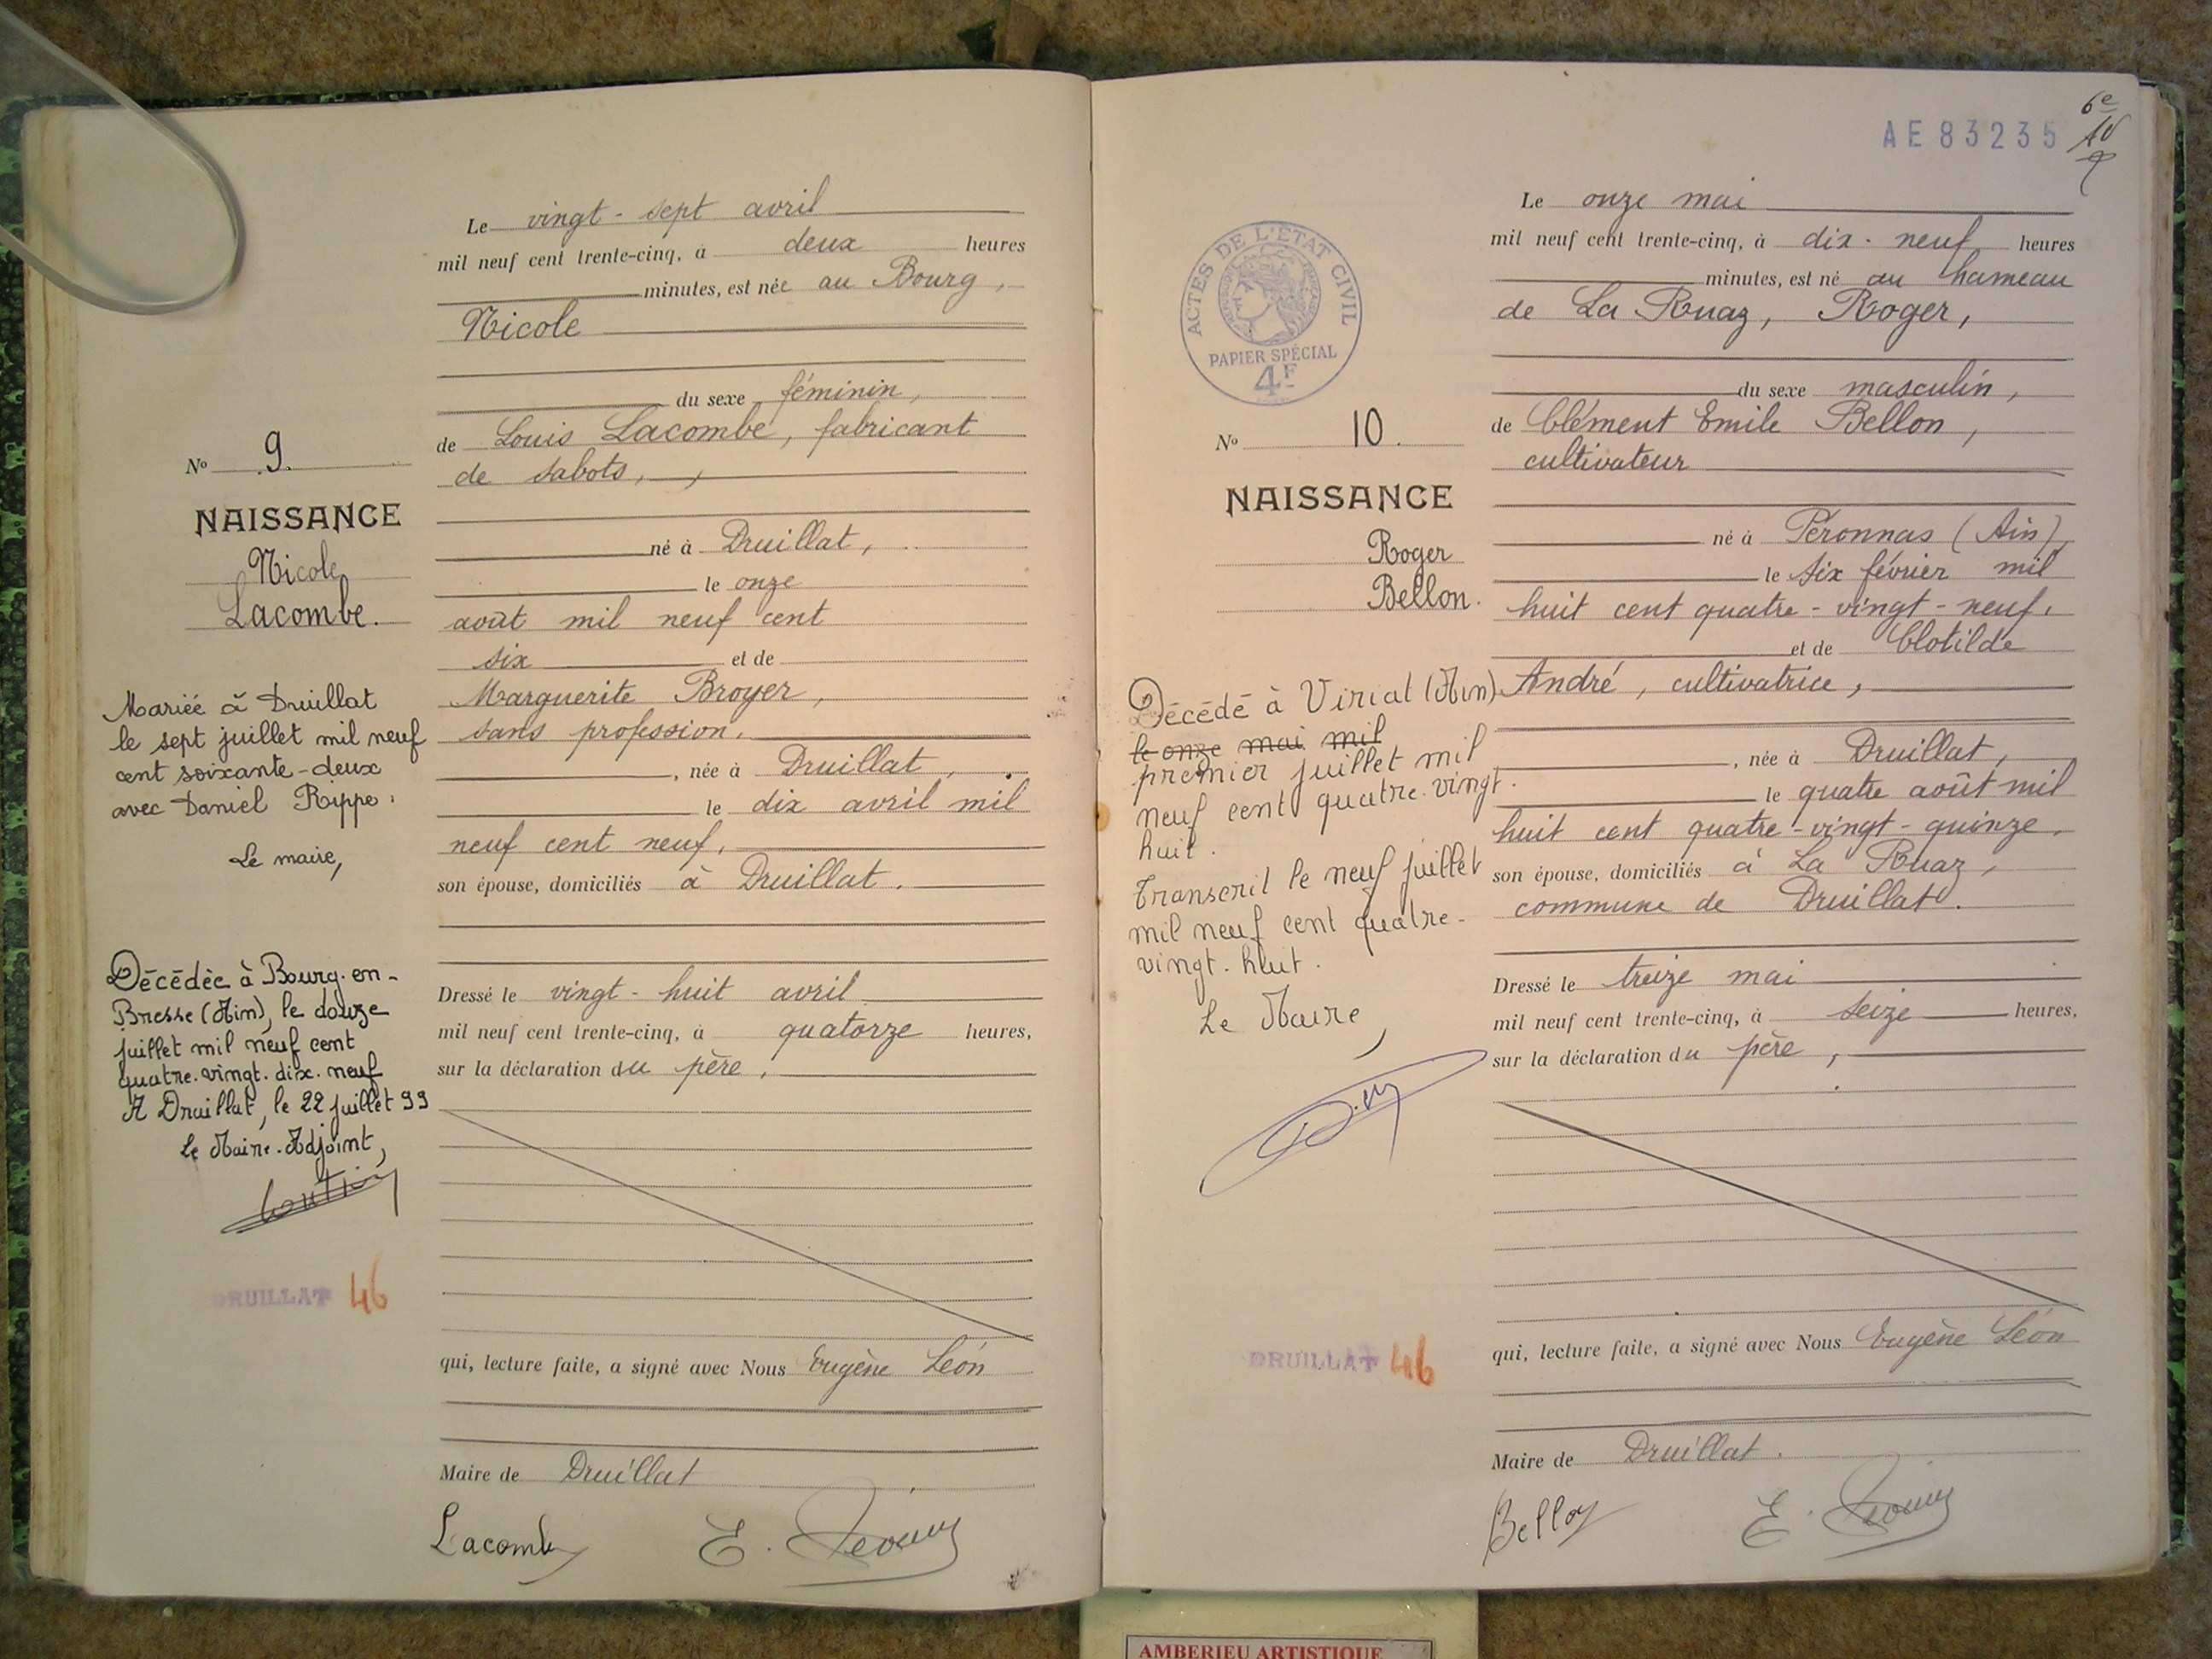 Le vingt-sept avril
mil neuf cent trente-cinq, à deux heures
minutes, est née au Bourg,
Nicole
du sexe féminin,
de Louis Lacombe, fabricant
de sabots,
né à Druillat,
le onze
août mil neuf cent
six et de
Marguerite Broyer,
sans profession,
, née à Druillat,
le dix avril mil
neuf cent neuf,
son épouse, domiciliés à Druillat.
Dressé le vingt-huit avril
mil neuf cent trente-cinq, à quatorze heures,
sur la déclaration du père,
qui, lecture faite, a signé avec Nous Eugène Léon
Maire de Druillat
Lacombe
E.
No 9.
NAISSANCE
Nicole
Lacombe.
Mariée à Druillat
le sept juillet mil neuf
cent soixante-deux
avec Daniel Rippe.
Le maire,
Décédée à Bourg-en-
Bresse (Ain), le douze
juillet mil neuf cent
quatre.vingt.dix.neuf
A Druillat, le 22 juillet 99
Le Maire-Adjoint,
DRUILLAT 46
AE83235
6e
ACTES DE L'ETAT CIVIL
PAPIER SPÉCIAL
4F
No 10.
NAISSANCE
Roger
Bellon.
Décédé à Viriat (Ain)
le onze mai mil
premier juillet mil
neuf cent quatre.vingt.
huit.
Transcrit le neuf juillet
mil neuf cent quatre-
vingt.huit.
Le Maire,
DRUILLAT 46
Le onze mai
mil neuf cent trente-cinq, à dix-neuf heures
minutes, est né au hameau
de La Ruaz, Roger,
du sexe masculin,
de Clément Emile Bellon,
cultivateur
né à Péronnas (Ain),
le six février mil
huit cent quatre-vingt-neuf,
et de Clotilde
André, cultivatrice,
, née à Druillat,
le quatre août mil
huit cent quatre-vingt-quinze,
son épouse, domiciliés à La Ruaz,
commune de Druillat.
Dressé le treize mai
mil neuf cent trente-cinq, à seize heures,
sur la déclaration du père,
qui, lecture faite, a signé avec Nous Eugène Léon
Maire de Druillat.
Bellon
E.
AMBERIEU ARTISTIQUE